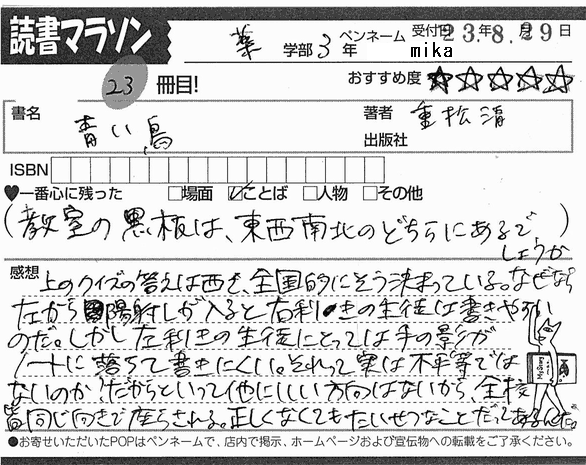 読書マラソン
薬 学部 3年 ペンネーム mika 受付日 23年8月29日
23 冊目!
おすすめ度 ☆☆☆☆☆
書名 青い鳥
著者 重松清
出版社
ISBN
♥一番心に残った □場面 ☑ことば □人物 □その他
(教室の黒板は、東西南北のどちらにあるで
しょうか)
感想 上のクイズの答えは西で、全国的にそう決まっている。なぜなら
左から陽射しが入ると右利きの生徒は書きやすい
のだ。しかし左利きの生徒にとっては手の影が
ノートに落ちて書きにくい。それって実は不平等では
ないのか。だからといって他にいい方向はないから、全校
皆同じ向きで座らされる。正しくなくてもたいせつなことだってあるんだ。
●お寄せいただいたPOPはペンネームで、店内で掲示、ホームページおよび宣伝物への転載をご了承ください。